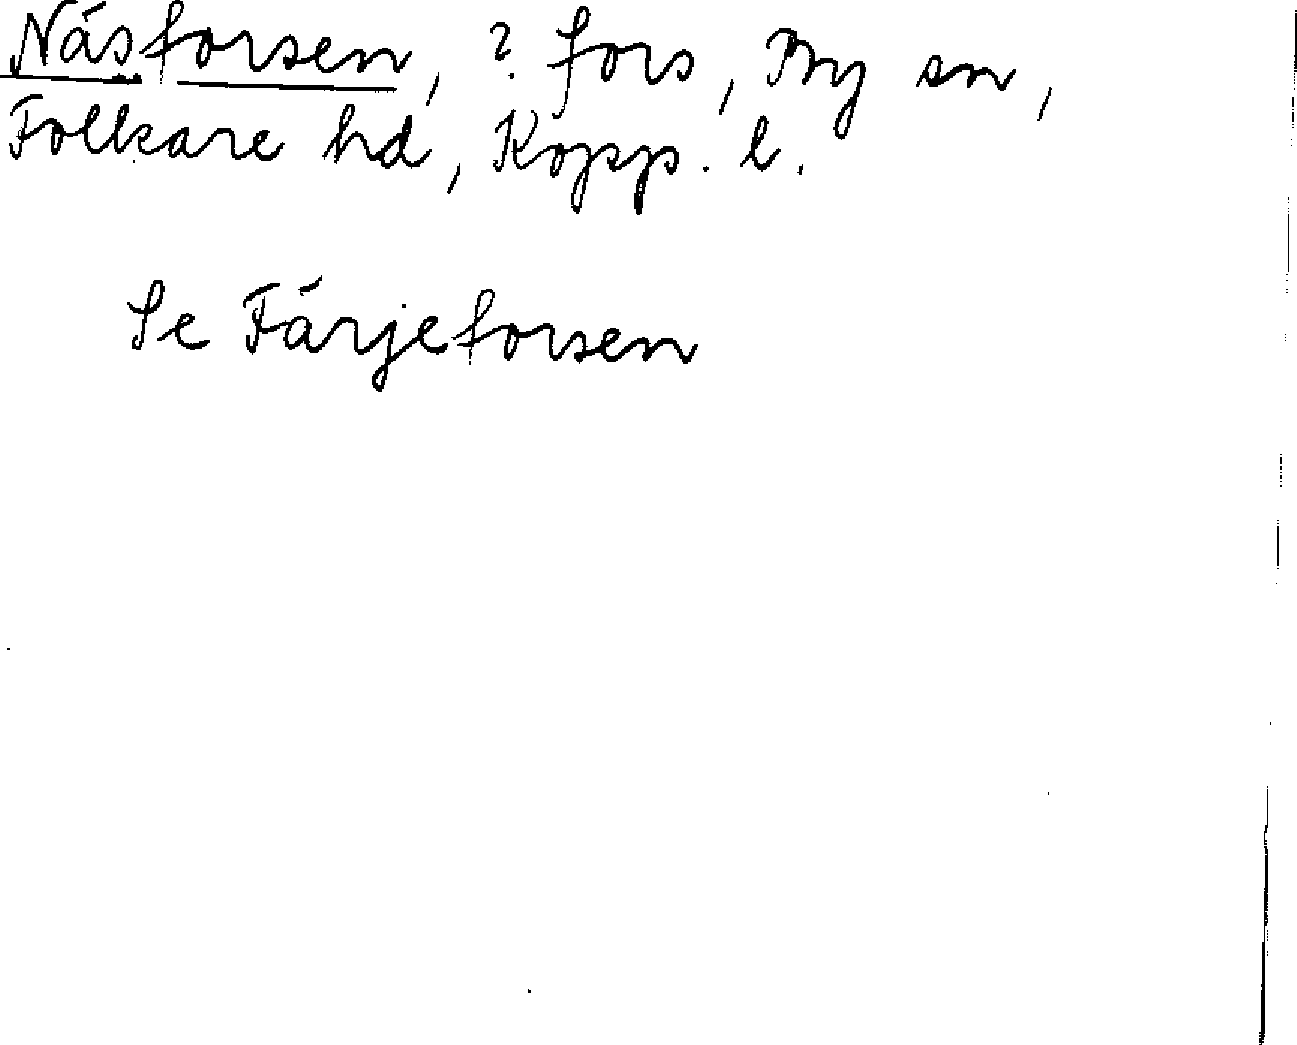 Näsforsen, ? fors, By sn,
Folkare hd, Kopp. l.
Se Färjeforsen